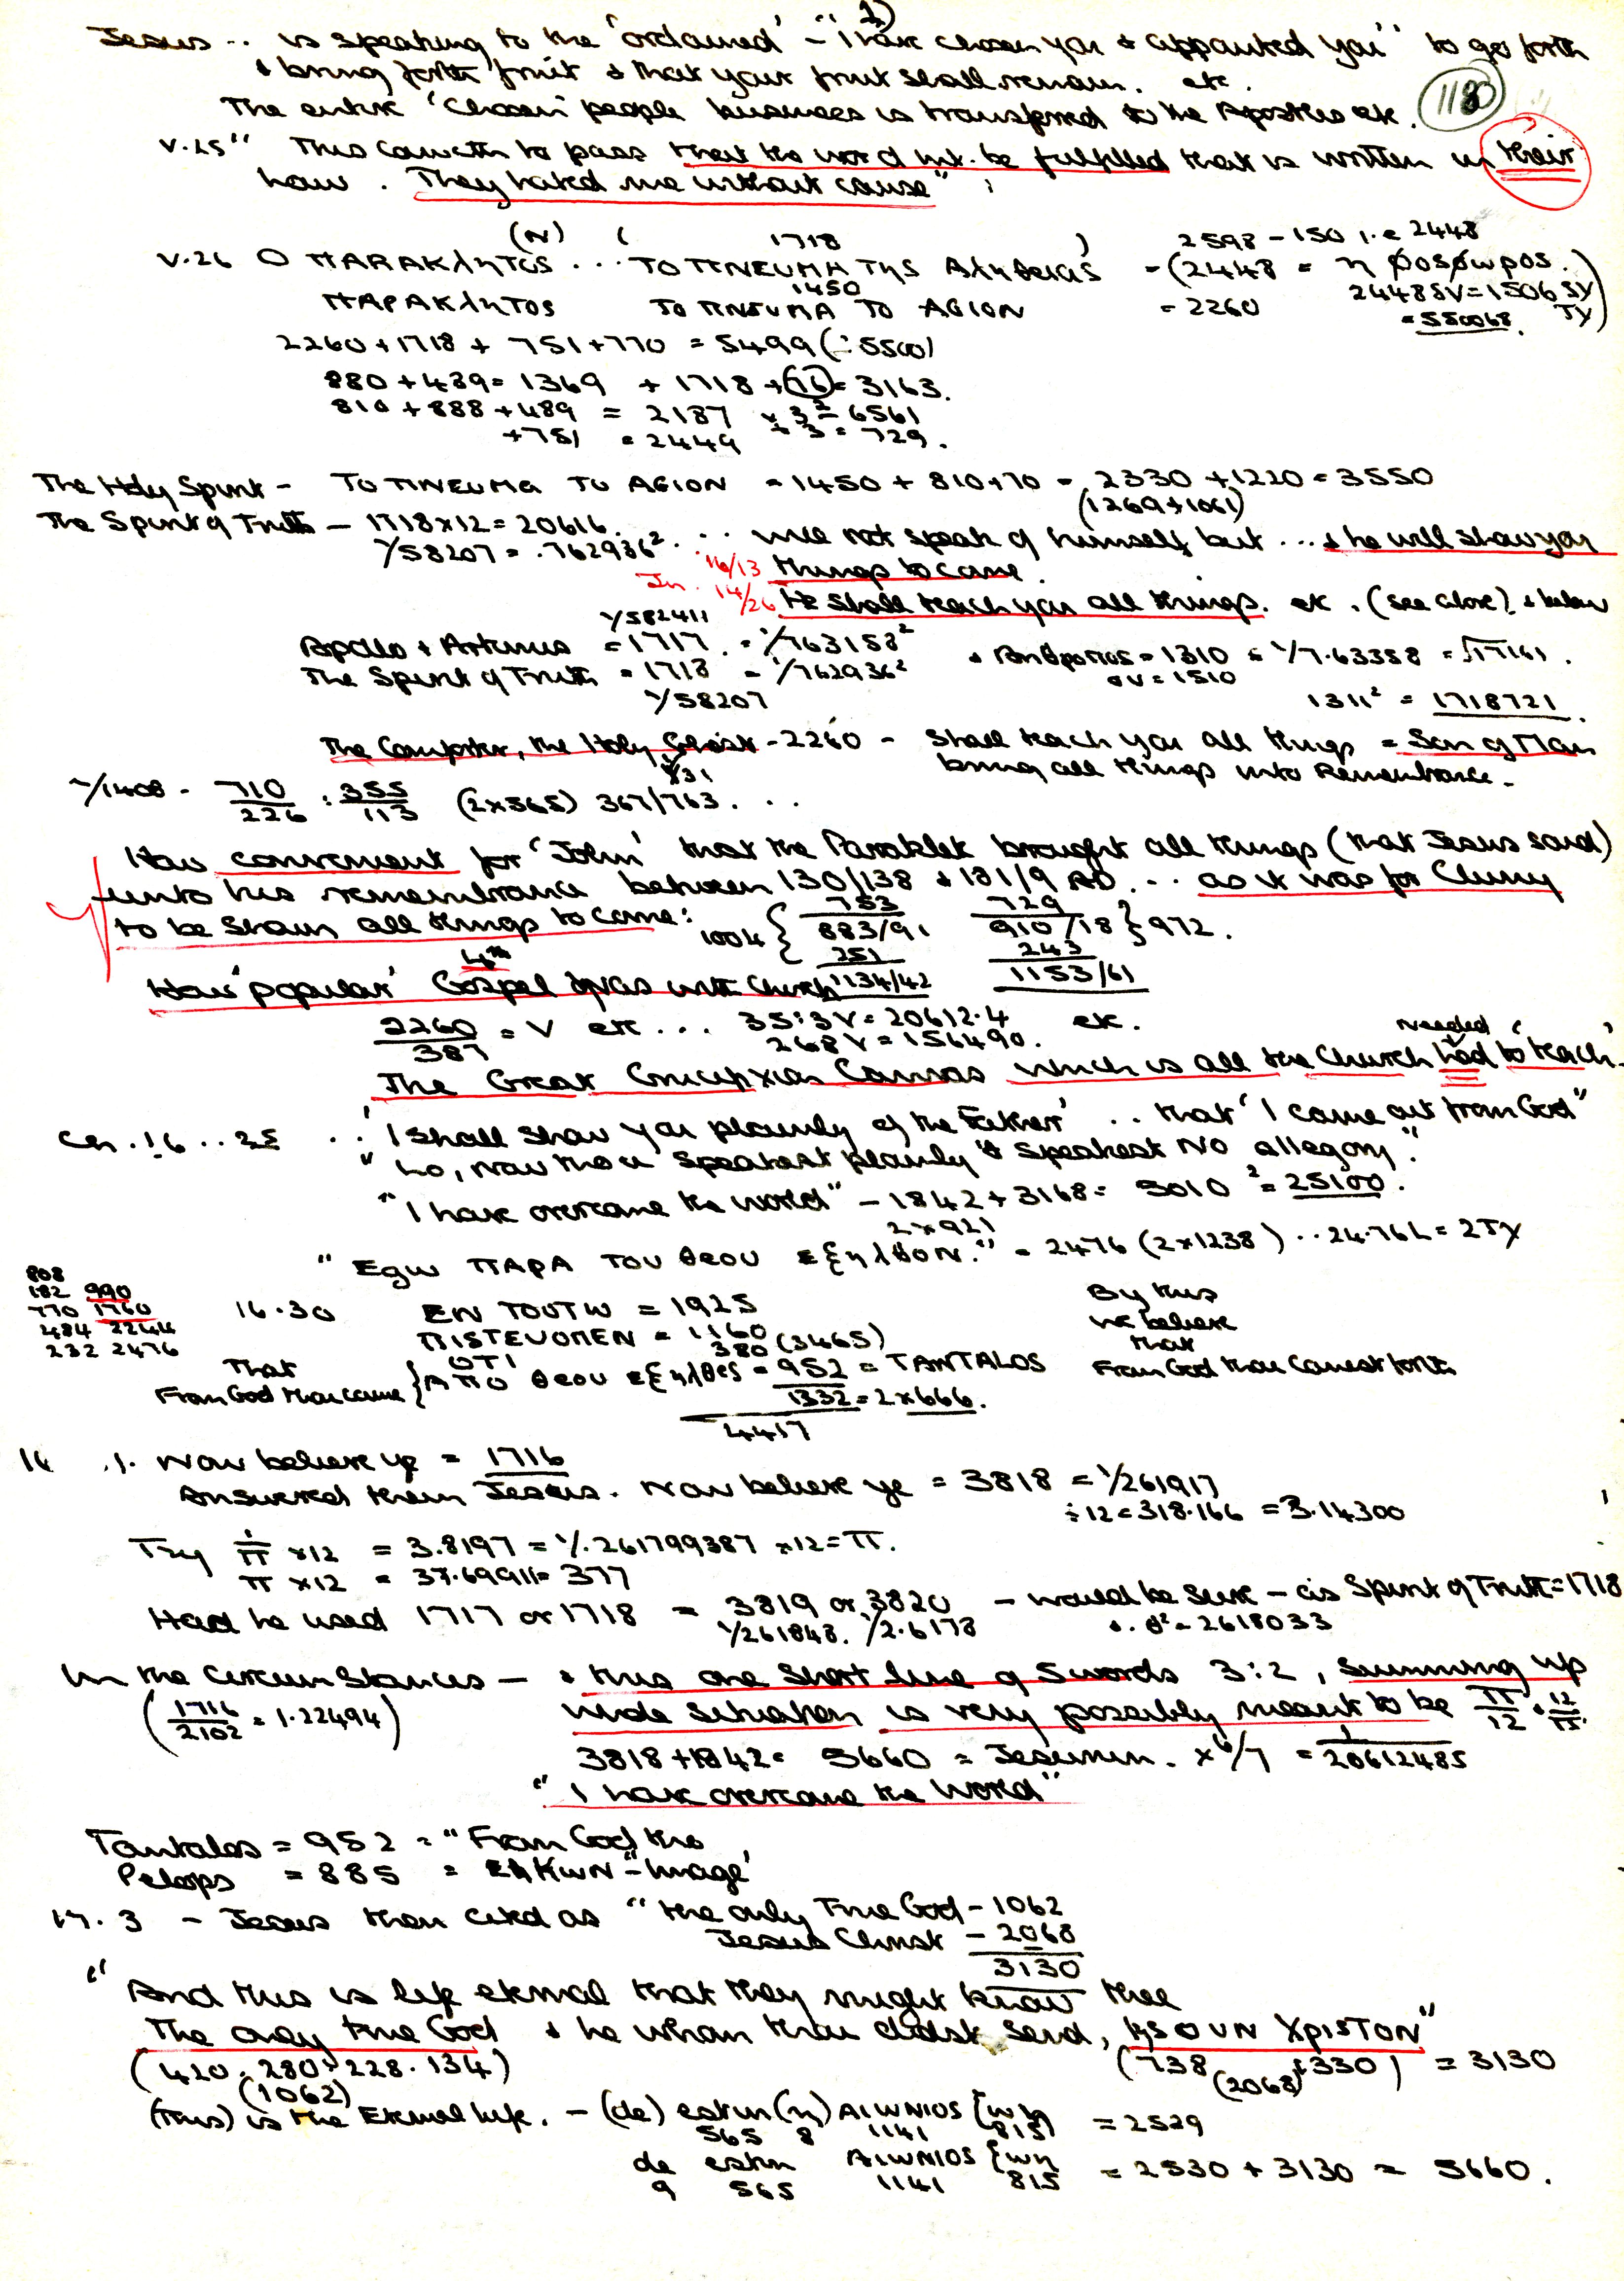 1)
Jesus .. is speaking to the 'ordained' - "I have chosen you & appointed you" to go forth
& bring forth fruit & that your fruit shall remain. etc.
The entire 'Chosen' people business is transferred to the Apostles etc.
1180
v.25 " This cometh to pass that the word mt. be fulfilled that is written in their
Law. They hated me without cause" :
(N) ( 1718 ) 2598 - 150 i.e 2448
v.26 O ΠARAKλητOS ... TO ΠNEUMA Tηs Aληθειas = (2448 = η φosφωρος.)
1450 2448SV = 1506 SY
ΠAPAKλητOS TO ΠNEUMA TO AGION = 2260 = 550068. TY
2260 + 1718 + 751 + 770 = 5499 (: 5500)
880 + 489 = 1369 + 1718 + 76 = 3163.
810 + 888 + 489 = 2187 x 3² = 6561
+ 751 = 2449 ÷ 3 = 729.
The Holy Spirit - TO ΠNEUMA TO AGION = 1450 + 810 + 70 = 2330 + 1220 = 3550
(1269 + 1061)
The Spirit of Truth - 1718 x 12 = 20616. ... will not speak of himself but ... & he will show you
1/58207 = .762936² .. 16/13 things to come.
Jn. 14/26 He shall teach you all things. etc. (see above) & below
1/582411
Apollo & Artemis = 1717. = 1/763158² & = 1310 = 1/7.63358 = √17161.
The Spirit of Truth = 1718 = 1/762936² = 1510
1/58207 1311² = 1718721.
The Comforter, the Holy Ghost - 2260 - shall teach you all things = Son of Man
bring all things into Remembrance -
1/31
1/1408 - 710/226 : 355/113 (2x565) 367/763. . .
How convenient for 'John' that the Paraklet brought all things (that Jesus said)
unto his remembrance between 130/138 & 181/9 AD ... as it was for Cluny
to be shown all things to come: 1004 { 753 729 } 972.
883/91 910/18
251 243
4th
How 'popular' Gospel with Church 1134/42 1153/61
2260/387 = V etc ... 35:3V = 20612.4 etc.
268V = 156490.
needed
The Great Crucifixion Canvas which is all the Church had to 'teach'.
Ch. 16 .. 25 .. 'I shall show you plainly of the Father' .. that 'I came out from God"
" Lo, now thou speakest plainly & speakest NO allegory".
"I have overcome the world" - 1842 + 3168 = 5010 ² = 25100.
2 x 921
" Egω ΠAPA TOU θeou eξηλθON." = 2476 (2x1238) .. 24.76L = 2TY
808
182 990
770 1760
484 2244
232 2476
16.30 EN TOUTW = 1925 By this
ΠISTEVOMEN = 1160 we believe
OTI 380 (3465) that
That
From God thou came { AΠO θeou eξηλθes = 952 = TANTALOS From God thou camest forth
1332 = 2x666.
4417
16 .1. Now believe ye = 1716
Answered them Jesus. Now believe ye = 3818 = 1/261917
÷ 12 = 318.166 = 3.14300
Try 1/π x12 = 3.8197 = 1/.261799387 x12 = π.
π x12 = 37.69911 = 377
Had he used 1717 or 1718 = 3819 or 3820 - would be sure - as Spirit of Truth = 1718
1/261848. 1/2.6178 & . θ² = 2618033
In the circumstances - & this one short line of 5 words 3:2, summing up
(1716/2102 = 1.22494) whole situation is very possibly meant to be π/12 & 12/π.
3818 + 1842 = 5660 = . x 6/7 = 1/20612485
" I have overcome the World"
Tantalos = 952 = "From God tho
Pelops = 885 = EIKωN "- Image'
17. 3 - Jesus then cited as "the only True God - 1062
Jesus Christ - 2068
3130
" And this is life eternal that they might know thee
The only true God & he whom thou didst send, IηSOUN XρISTON"
(420. 280. 228. 134) (738 + 1330) = 3130
(1062) (2068)
(this) is the Eternal life. - (de) estin (η) AIWNIOS ζωη = 2529
565 8 1141 815
de estin AIWNIOS ζωη = 2530 + 3130 = 5660.
9 565 1141 815